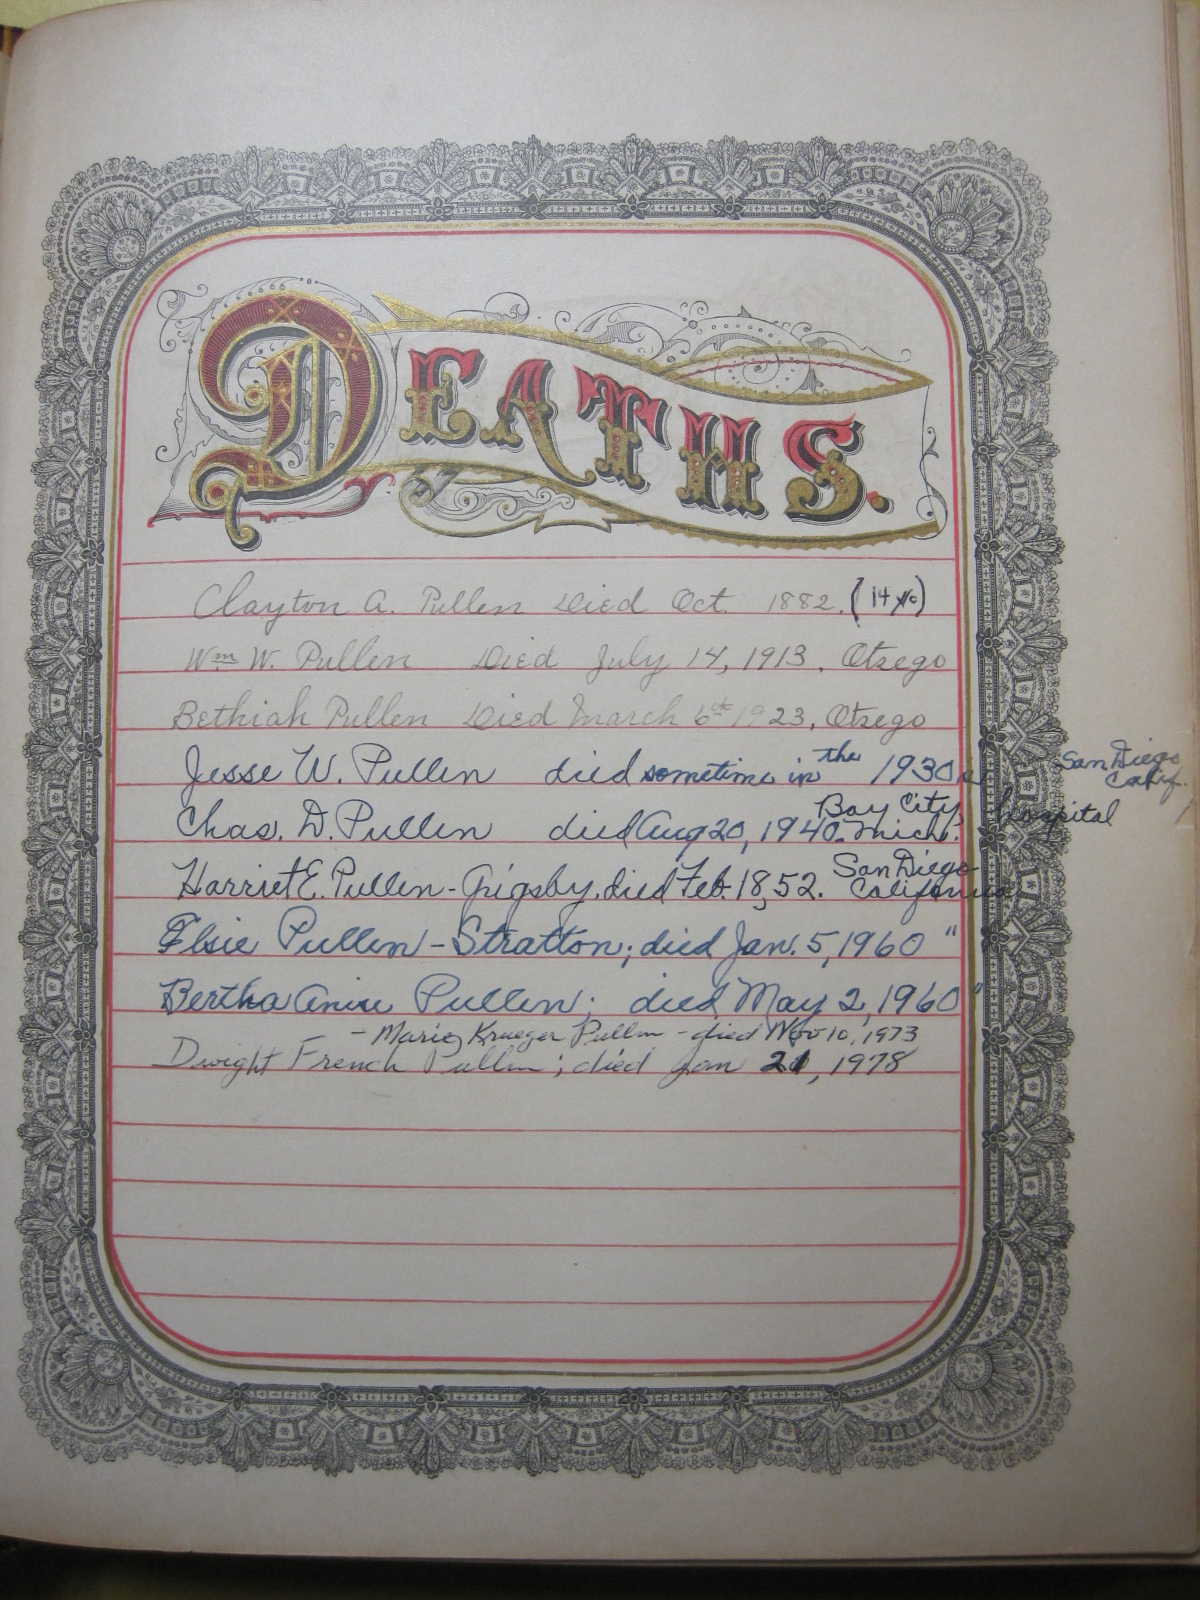 DEATHS.
Clayton A. Pullen Died Oct. 1882. (14 yo)
Wm W. Pullen Died July 14, 1913. Otsego
Bethiah Pullen Died March 6th 1923, Otsego
Jesse W. Pullen died sometime in the 1930s San Diego Calif.
Chas. D. Pullen died Aug 20, 1940. Bay City, Mich. hospital
Harriet E. Pullen-Grigsby, died Feb. 18, 52. San Diego California
Elsie Pullen-Stratton; died Jan. 5, 1960 "
Bertha Pullen; died May 2, 1960 "
- Marie Krueger Pullen - died Nov 10, 1973
Dwight French Pullen; died Jan 21, 1978